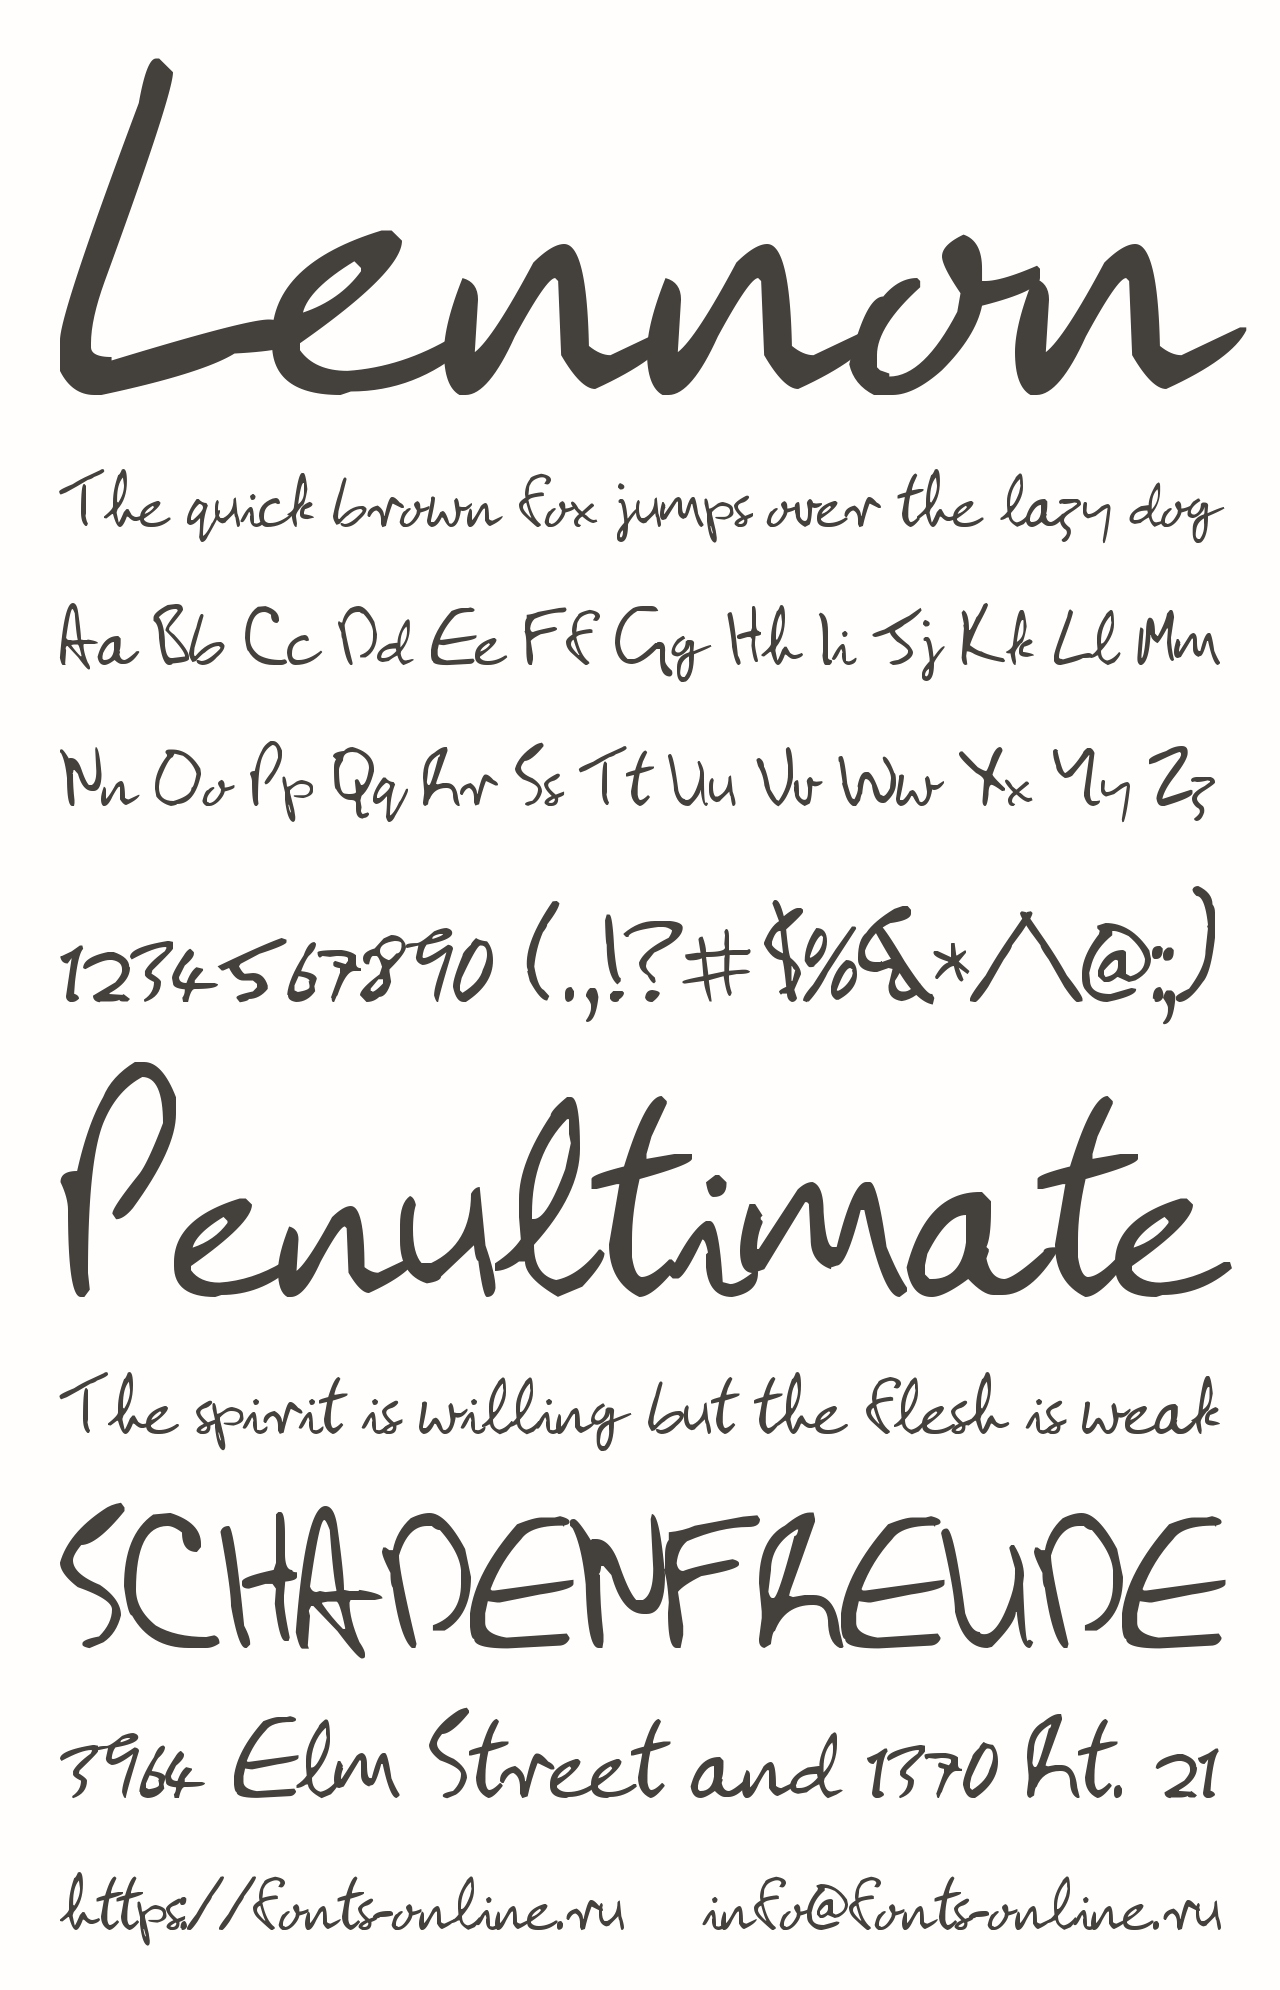 Lennon
The quick brown fox jumps over the lazy dog
Aa Bb Cc Dd Ee Ff Gg Hh Ii Jj Kk Ll Mm
Nn Oo Pp Qq Rr Ss Tt Uu Vv Ww Xx Yy Zz
1234567890 (.,!?#$%&*/\@:;)
Penultimate
The spirit is willing but the flesh is weak
SCHADENFREUDE
3964 Elm Street and 1370 Rt. 21
https://fonts-online.ru info@fonts-online.ru